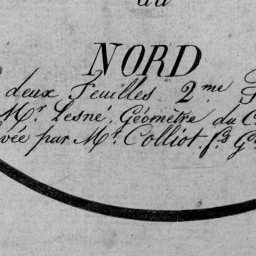 du
NORD
deux Feuilles 2.me
Mr. Lesné, Géomètre du
vée par Mr. Colliot f.s